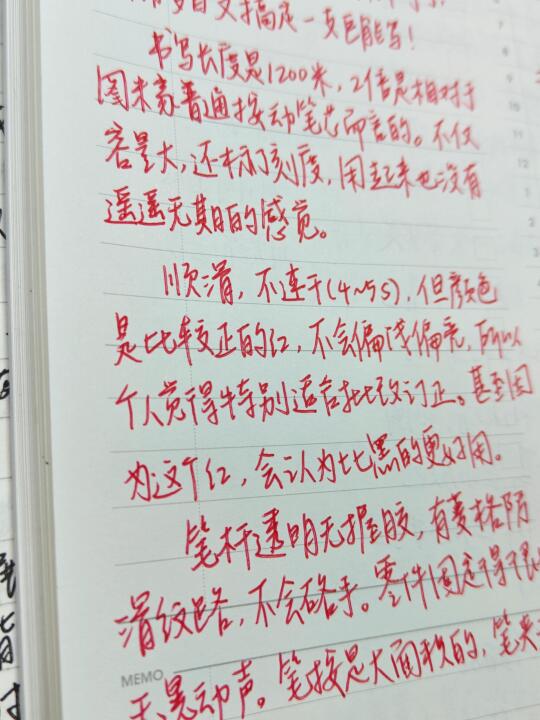 搞定一支巨能写!
书写长度是1200米,2倍是相对于
图来素普通按动笔芯而言的。不仅
容量大,还标了刻度,用起来也没有
遥遥无期的感觉。
顺滑,不速干(4~5s),但颜色
是比较正的红,不会偏浅偏亮,所以
个人觉得特别适合批改订正。甚至因
为这个红,会认为比黑的更好用。
笔杆透明无握胶,有菱格防
滑纹路,不会硌手。零件固定得很
无晃动声。笔按是大面积的,笔夹
MEMO